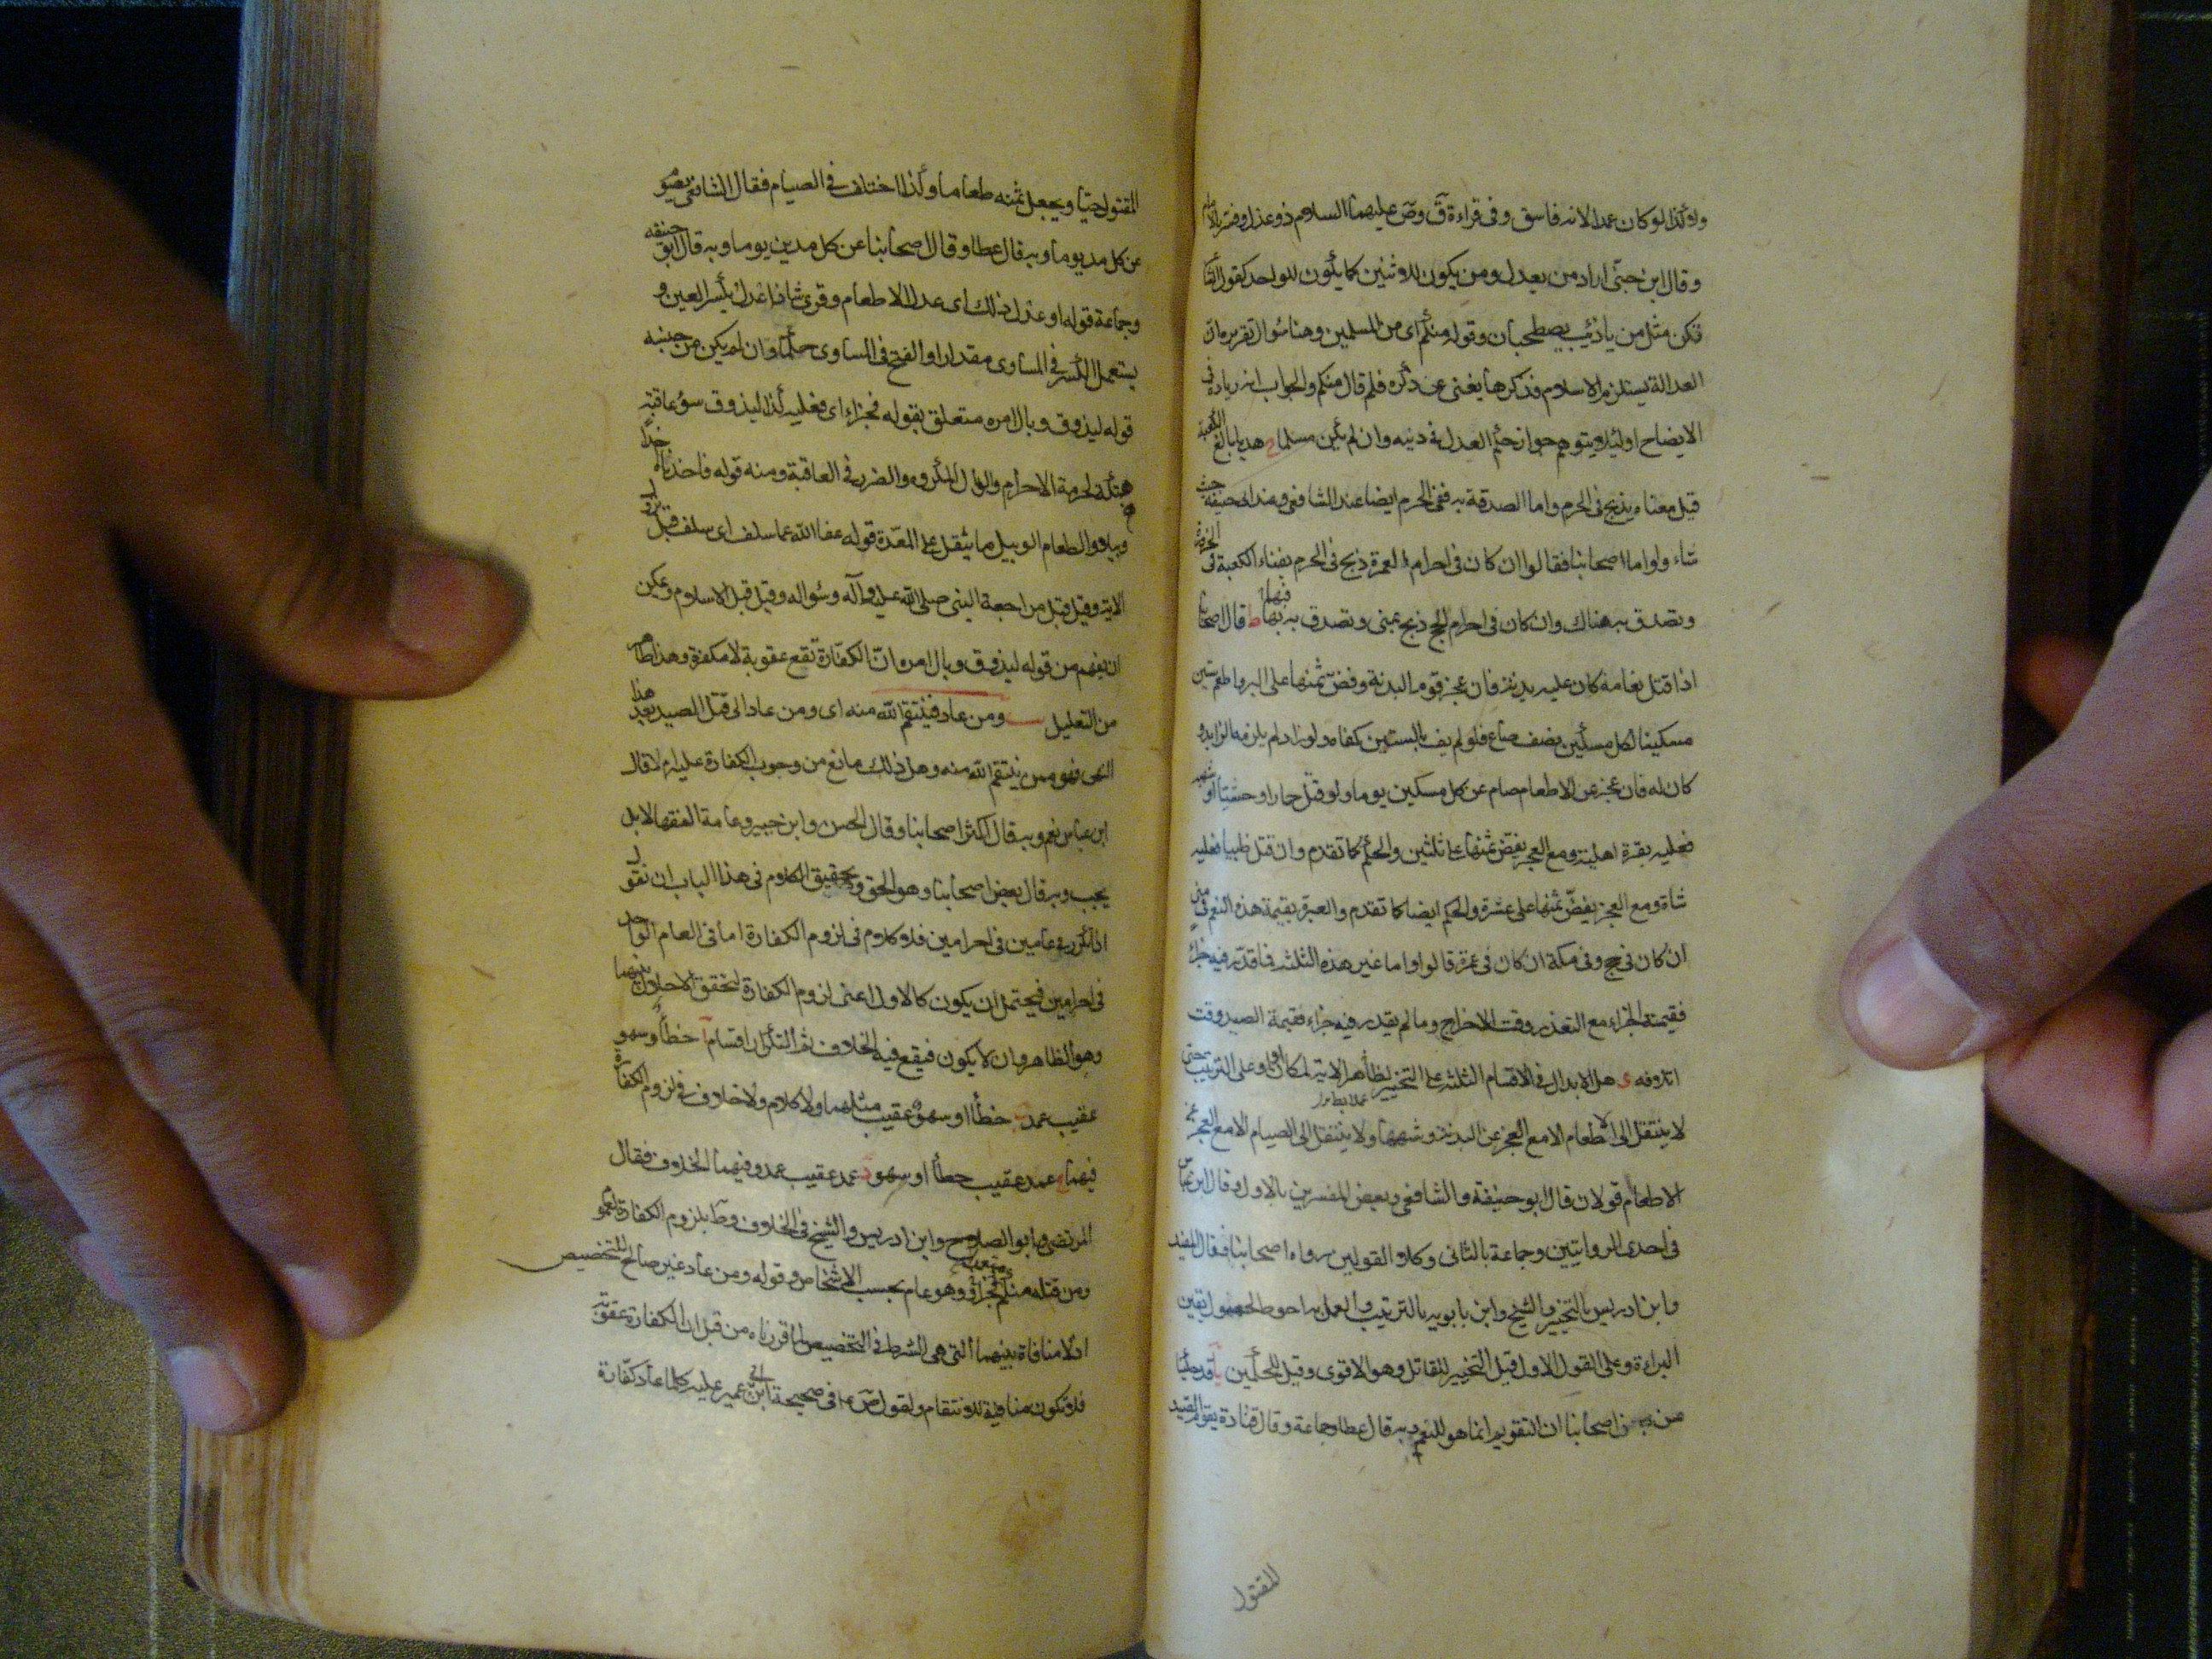 ولو كذا لو كان عمدا لانه فاسق وفى قراءة ق وص عليهما السلام ذو عدل وفسر بالامام
وقال ابن جنى اراد من يعدل ومن يكون للاثنين كما يكون للواحد كقول الشا
نكن مثل من ياذئب يصطحبان وقوله منكم اى من المسلمين وهنا سؤال تقريره ان
العدالة يستلزم الاسلام فذكرها يغنى عن ذكره فلم قال منكم والجواب انه زيادة فى
الايضاح او لئلا يتوهم جواز حكم العدل فى دينه وان لم يكن مسلما ح هديا بالغ الكعبة
قيل معناه يذبح فى الحرم واما الصدقة به ففى الحرم ايضا عند الشافعى وعند ابى حنيفة حيث
شاء واما اصحابنا فقالوا ان كان فى احرام العمرة ذبح فى الحرم بفناء الكعبة فى الحزورة
وتصدق به هناك وان كان فى احرام الحج ذبح بمنى وتصدق به بها فيها ط قال اصحابنا
اذا قتل نعامة كان عليه بدنة فان عجز قوم البدنة وفض ثمنها على البر واطعم ستين
مسكينا لكل مسكين نصف صاع فلو لم يف بالستين كفاه ولو زاد لم يلزمه الزايد و
كان له فان عجز عن الاطعام صام عن كل مسكين يوما ولو قتل حمارا وحشيا او شبهه
فعليه بقرة اهلية ومع العجز يفض ثمنها على ثلثين والحكم كما تقدم وان قتل ظبيا فعليه
شاة ومع العجز يفض ثمنها على عشرة والحكم ايضا كما تقدم والعبرة بقيمة هذه النعم فى منى
ان كان فى حج وفى مكة ان كان فى عمرة قالوا واما غير هذه الثلثة فما قدر فيه جزاء
فقيمة الجزاء مع التعذر وقت الاخراج وما لم يقدر فيه جزاء فقيمة الصيد وقت
اتلافه ى هل الابدال فى الاقسام الثلثة على التخيير لظاهر الاية لمكان او او على الترتيب حتى
لا ينتقل الى الاطعام الا مع العجز عن البدنة وشبهها ولا ينتقل الى الصيام الا مع العجز عن
الاطعام قولان قال ابو حنيفة والشافعى وبعض المفسرين بالاول وقال ابن عباس
فى احدى الروايتين وجماعة بالثانى وكلا القولين رواه اصحابنا فقال المفيد
وابن ادريس بالتخيير والشيخ وابن بابويه بالترتيب والعمل به احوط لحصول يقين
البراءة وعلى القول الاول قيل التخيير للقاتل وهو الاقوى وقيل للحكمين يا قد حكينا
عن اصحابنا ان التقويم انما هو للنعم وبه قال عطا وجماعة وقال قتادة يقوم الصيد
للمقتول
المقتول حيا ويجعل ثمنه طعاما وكذا اختلف فى الصيام فقال الشافعى يصوم
عن كل مد يوما وبه قال عطا وقال اصحابنا عن كل مدين يوما وبه قال ابو حنيفة
وجماعة قوله او عدل ذلك اى عدل الاطعام وقرئ شاذا عدل بكسر العين و
يستعمل الكسر فى المساوى مقدارا والفتح فى المساوى حكما وان لم يكن من جنسه
قوله ليذوق وبال امره متعلق بقوله فجزاء اى فعليه كذا ليذوق سوء عاقبة
هتكه لحرمة الاحرام والوبال المكروه والضرر فى العاقبة ومنه قوله فاخذناه اخذا
وبيلا والطعام الوبيل ما يثقل على المعدة قوله عفا الله عما سلف اى سلف قبل نزول
الاية وقيل قبل مراجعة النبى صلى الله عليه وآله وسؤاله وقيل قبل الاسلام ويمكن
ان يفهم من قوله ليذوق وبال امره ان الكفارة تقع عقوبة لا مكفرة وهذا ظاهر
من التعليل ومن عاد فينتقم الله منه اى ومن عاد الى قتل الصيد بعد هذا
النهى فهو ممن ينتقم الله منه وهل ذلك مانع من وجوب الكفارة عليه ام لا قال
ابن عباس نعم وبه قال اكثر اصحابنا وقال الحسن وابن جبير وعامة الفقها لا بل
يجب وبه قال بعض اصحابنا وهو الحق وتحقيق الكلام فى هذا الباب ان نقول
اذا تكرر فى عامين فى احرامين فلا كلام فى لزوم الكفارة اما فى العام الواحد
فى احرامين فيحتمل ان يكون كالاول اعنى لزوم الكفارة لتحقق الاحلال بينهما
وهو الظاهر وان لا يكون فيقع فيه الخلاف ثم التكرار اقسام آ خطأ وسهو
عقيب عمد ب خطأ او سهو عقيب مثلهما ولا كلام ولا خلاف فى لزوم الكفارة
فيهما ج عمد عقيب خطأ او سهو د عمد عقيب عمد وفيهما الخلاف فقال
المرتضى وابو الصلاح وابن ادريس والشيخ فى الخلاف وط بلزوم الكفارة لعموم
ومن قتله منكم متعمدا فجزاء وهو عام بحسب الاشخاص وقوله ومن عاد غير صالح للتخصيص
اذ لا منافاة بينهما التى هى الشرط فى التخصيص لما قررناه من قبل ان الكفارة عقوبة
فلا تكون منافية للانتقام ولقول ص ع فى صحيحة ابن ابى عمير عليه كلما عاد كفارة